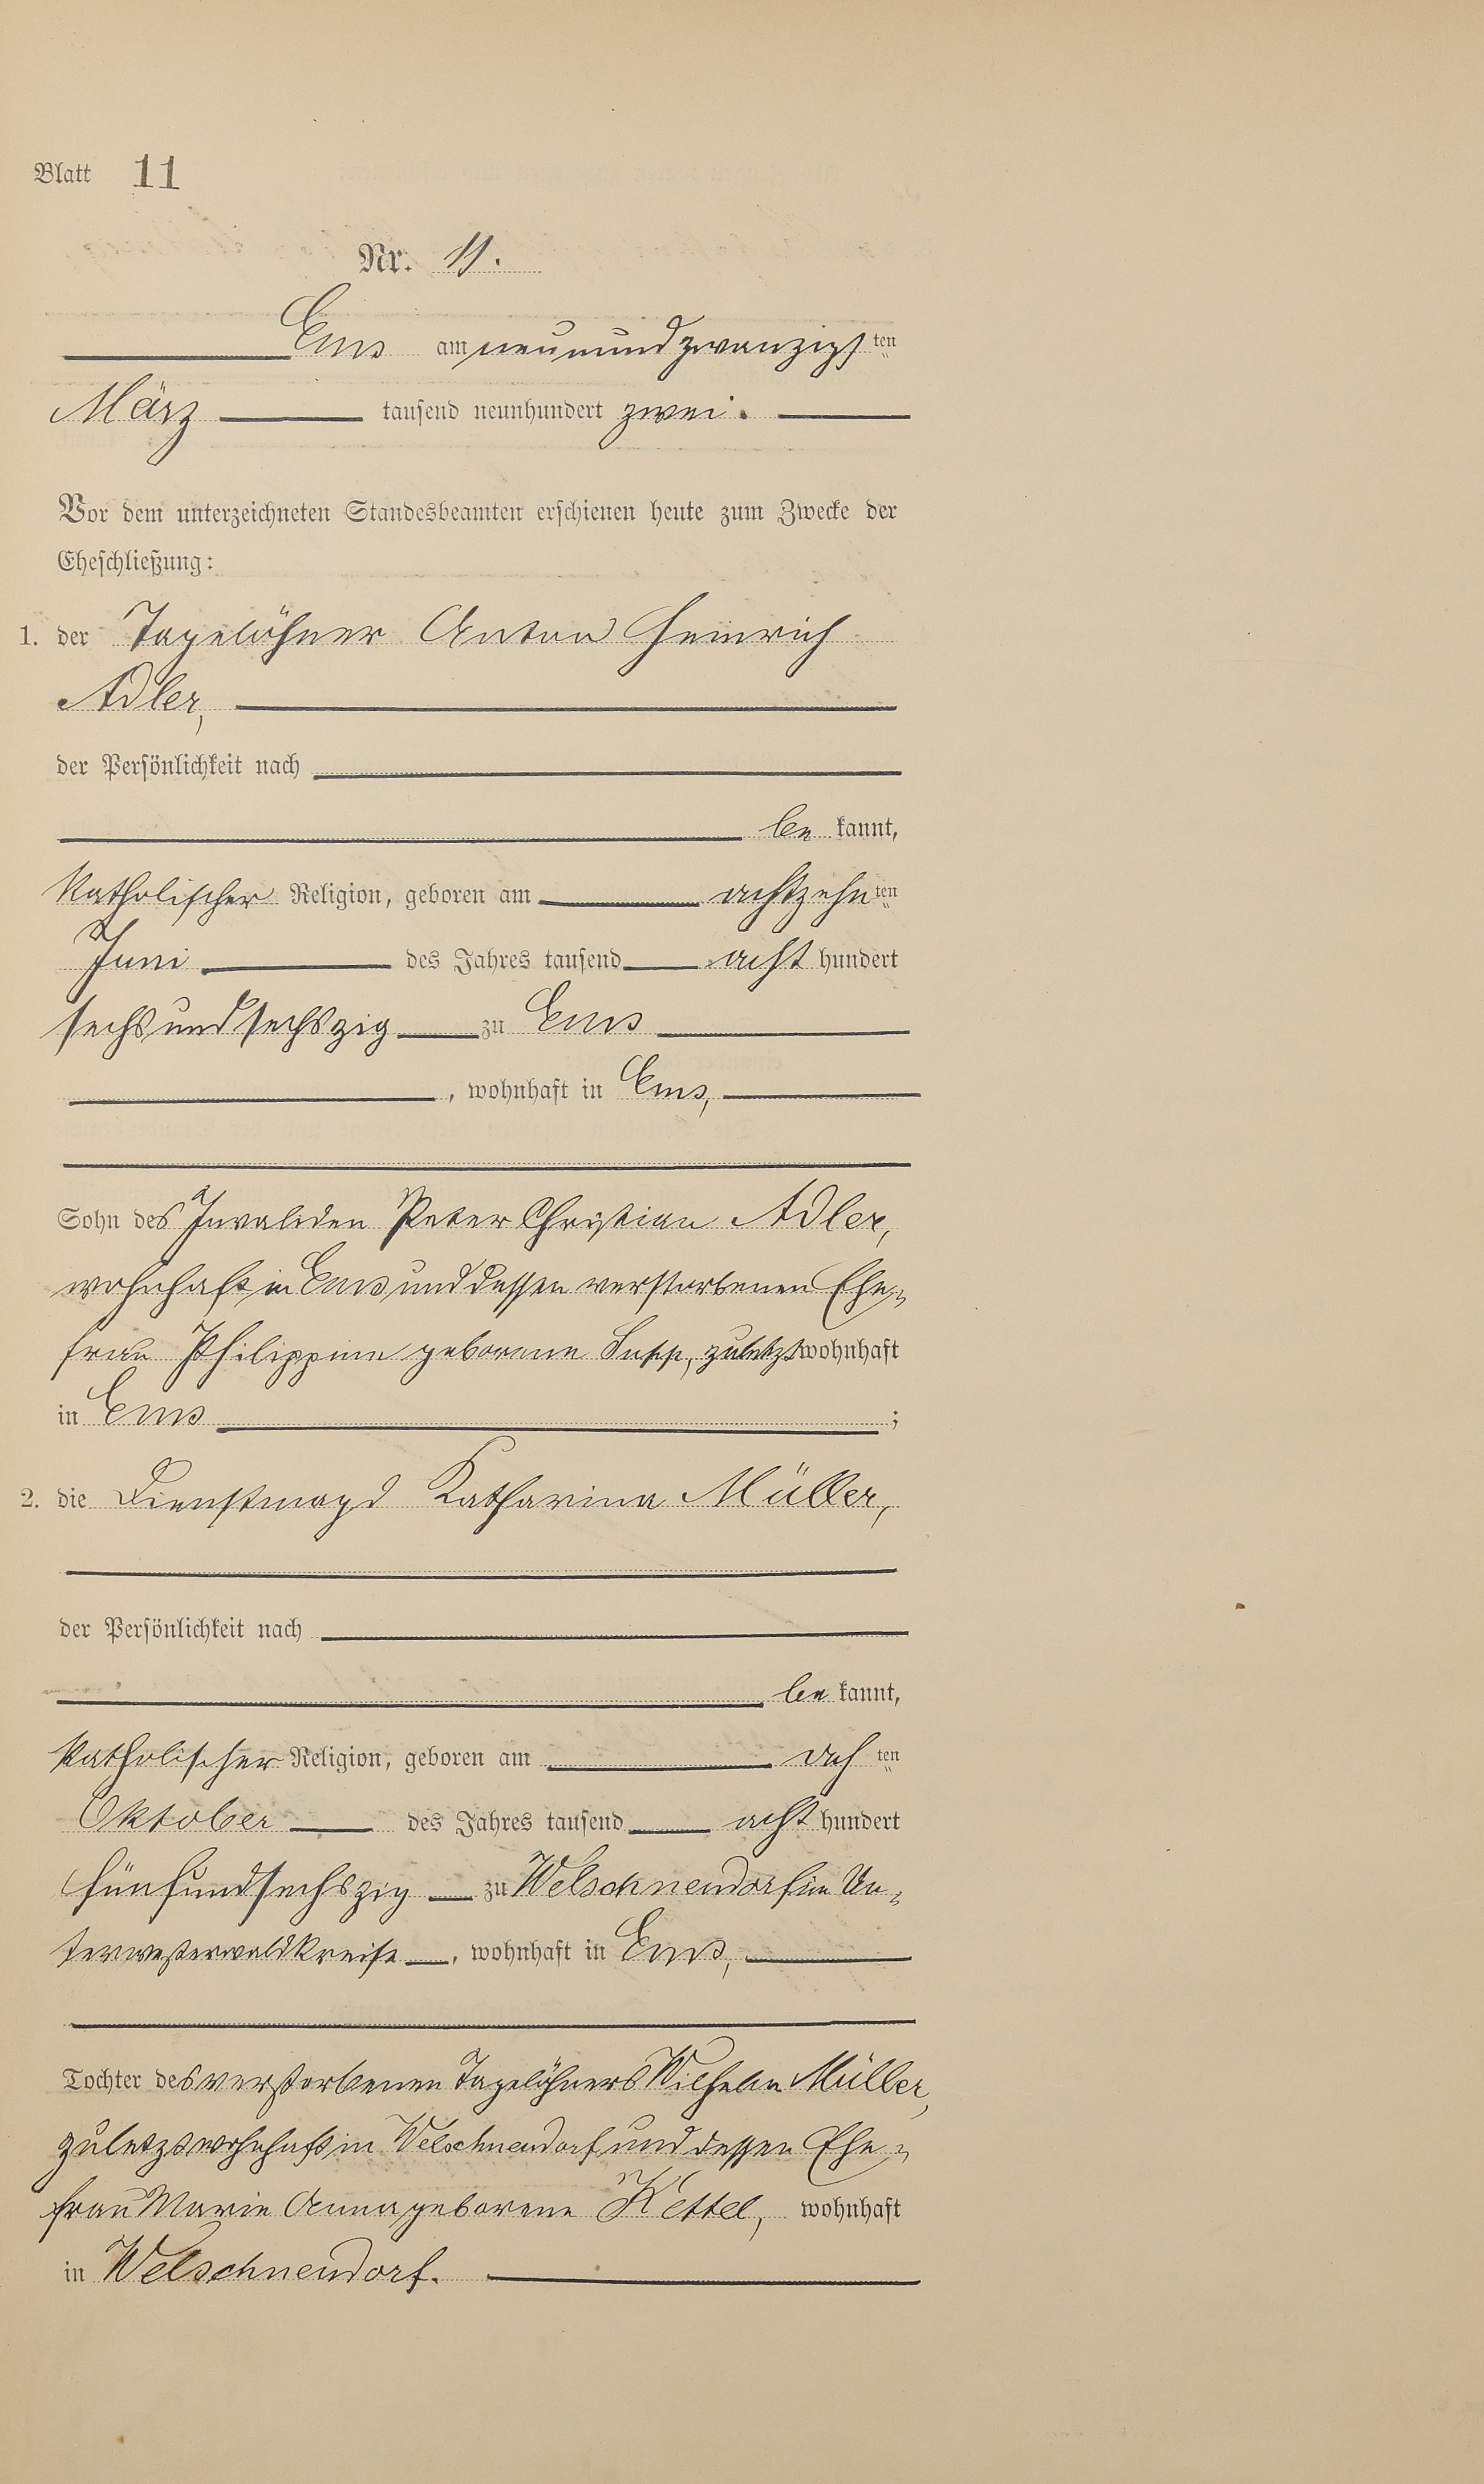 Blatt 11
Nr. 11.
Ems am neunundzwanzigsten
März tausend neunhundert zwei.
Vor dem unterzeichneten Standesbeamten erschienen heute zum Zwecke der
Eheschließung:
1. der Tagelöhner Anton Heinrich
Adler,
der Persönlichkeit nach
be kannt,
katholischer Religion, geboren am achtzehnten
Juni des Jahres tausend acht hundert
sechsundsechszig zu Ems
, wohnhaft in Ems,
Sohn des Invaliden Peter Christian Adler,
wohnhaft in Ems und dessen verstorbenen Ehe-
frau Philippine geborene zuletzt wohnhaft
in Ems ;
2. die Dienstmagd Katharina Müller,
der Persönlichkeit nach
be kannt,
katholischer Religion, geboren am ach ten
Oktober des Jahres tausend acht hundert
fünfundsechszig zu Welschneudorf im Un-
terwesterwaldkreise, wohnhaft in Ems,
Tochter des verstorbenen Tagelöhners Wilhelm Müller,
zuletzt wohnhaft in Welschneudorf und dessen Ehe-
frau Marie Anna geborene Kettel, wohnhaft
in Welschneudorf.